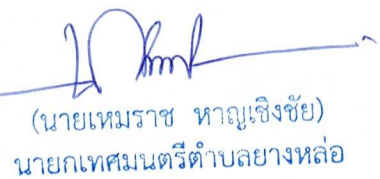 (นายเหมราช หาญเชิงชัย)
นายกเทศมนตรีตำบลยางหล่อ